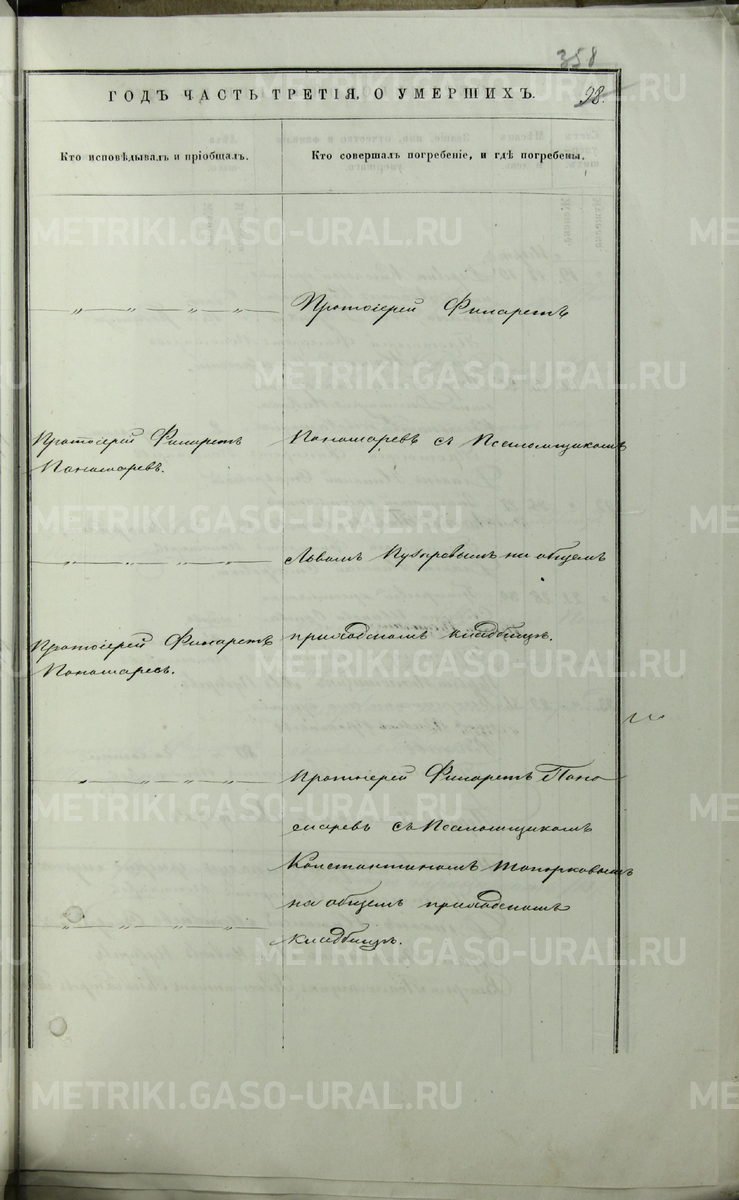 358
ГОДЪ ЧАСТЬ ТРЕТІЯ, О УМЕРШИХЪ.
98.
Кто исповѣдывалъ и пріобщалъ.
Кто совершалъ погребеніе, и гдѣ погребены.
— „ — „ — „ — „ —
Протоіерей Филаретъ
Протоіерей Филаретъ
Пономаревъ.
Пономаревъ съ Псаломщикомъ
— „ — „ — „ — „ —
Львомъ Пузыревымъ на общемъ
Протоіерей Филаретъ
Пономаревъ.
приходскомъ кладбищѣ.
— „ — „ — „ — „ —
Протоіерей Филаретъ Поно
маревъ съ Псаломщикомъ
Константиномъ Топорковымъ
на общемъ приходскомъ
— „ — „ — „ — „ —
кладбищѣ.
METRIKI.GASO-URAL.RU